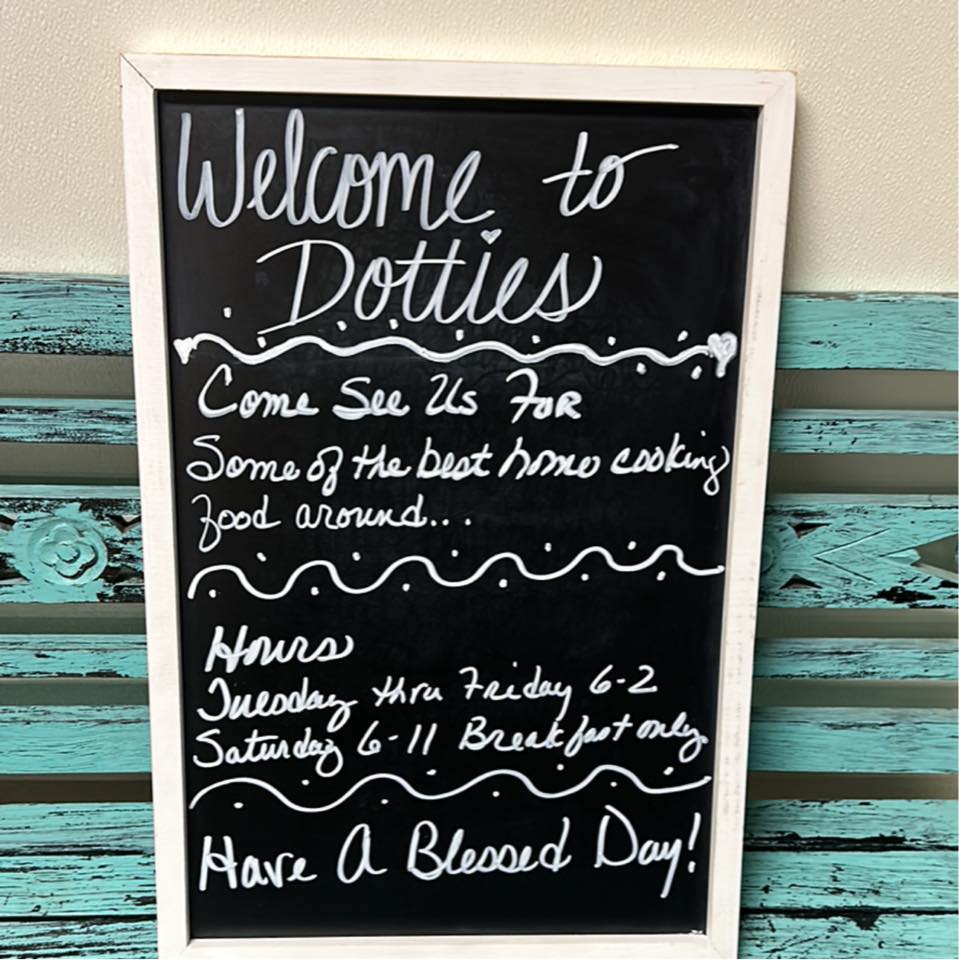 Welcome to
Dotties
Come See Us FoR
Some of the best home cooking
food around...
Hours
Tuesday thru Friday 6-2
Saturday 6-11 Breakfast only
Have A Blessed Day!